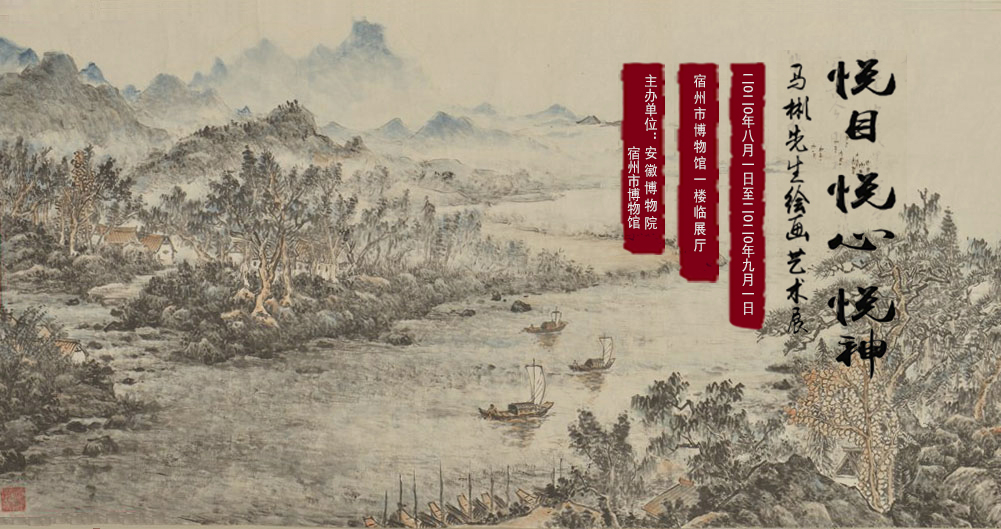 悦目 悦心 悦神
马彬先生绘画艺术展
二〇二〇年八月一日至二〇二〇年九月一日
宿州市博物馆一楼临展厅
主办单位：安徽博物院
宿州市博物馆